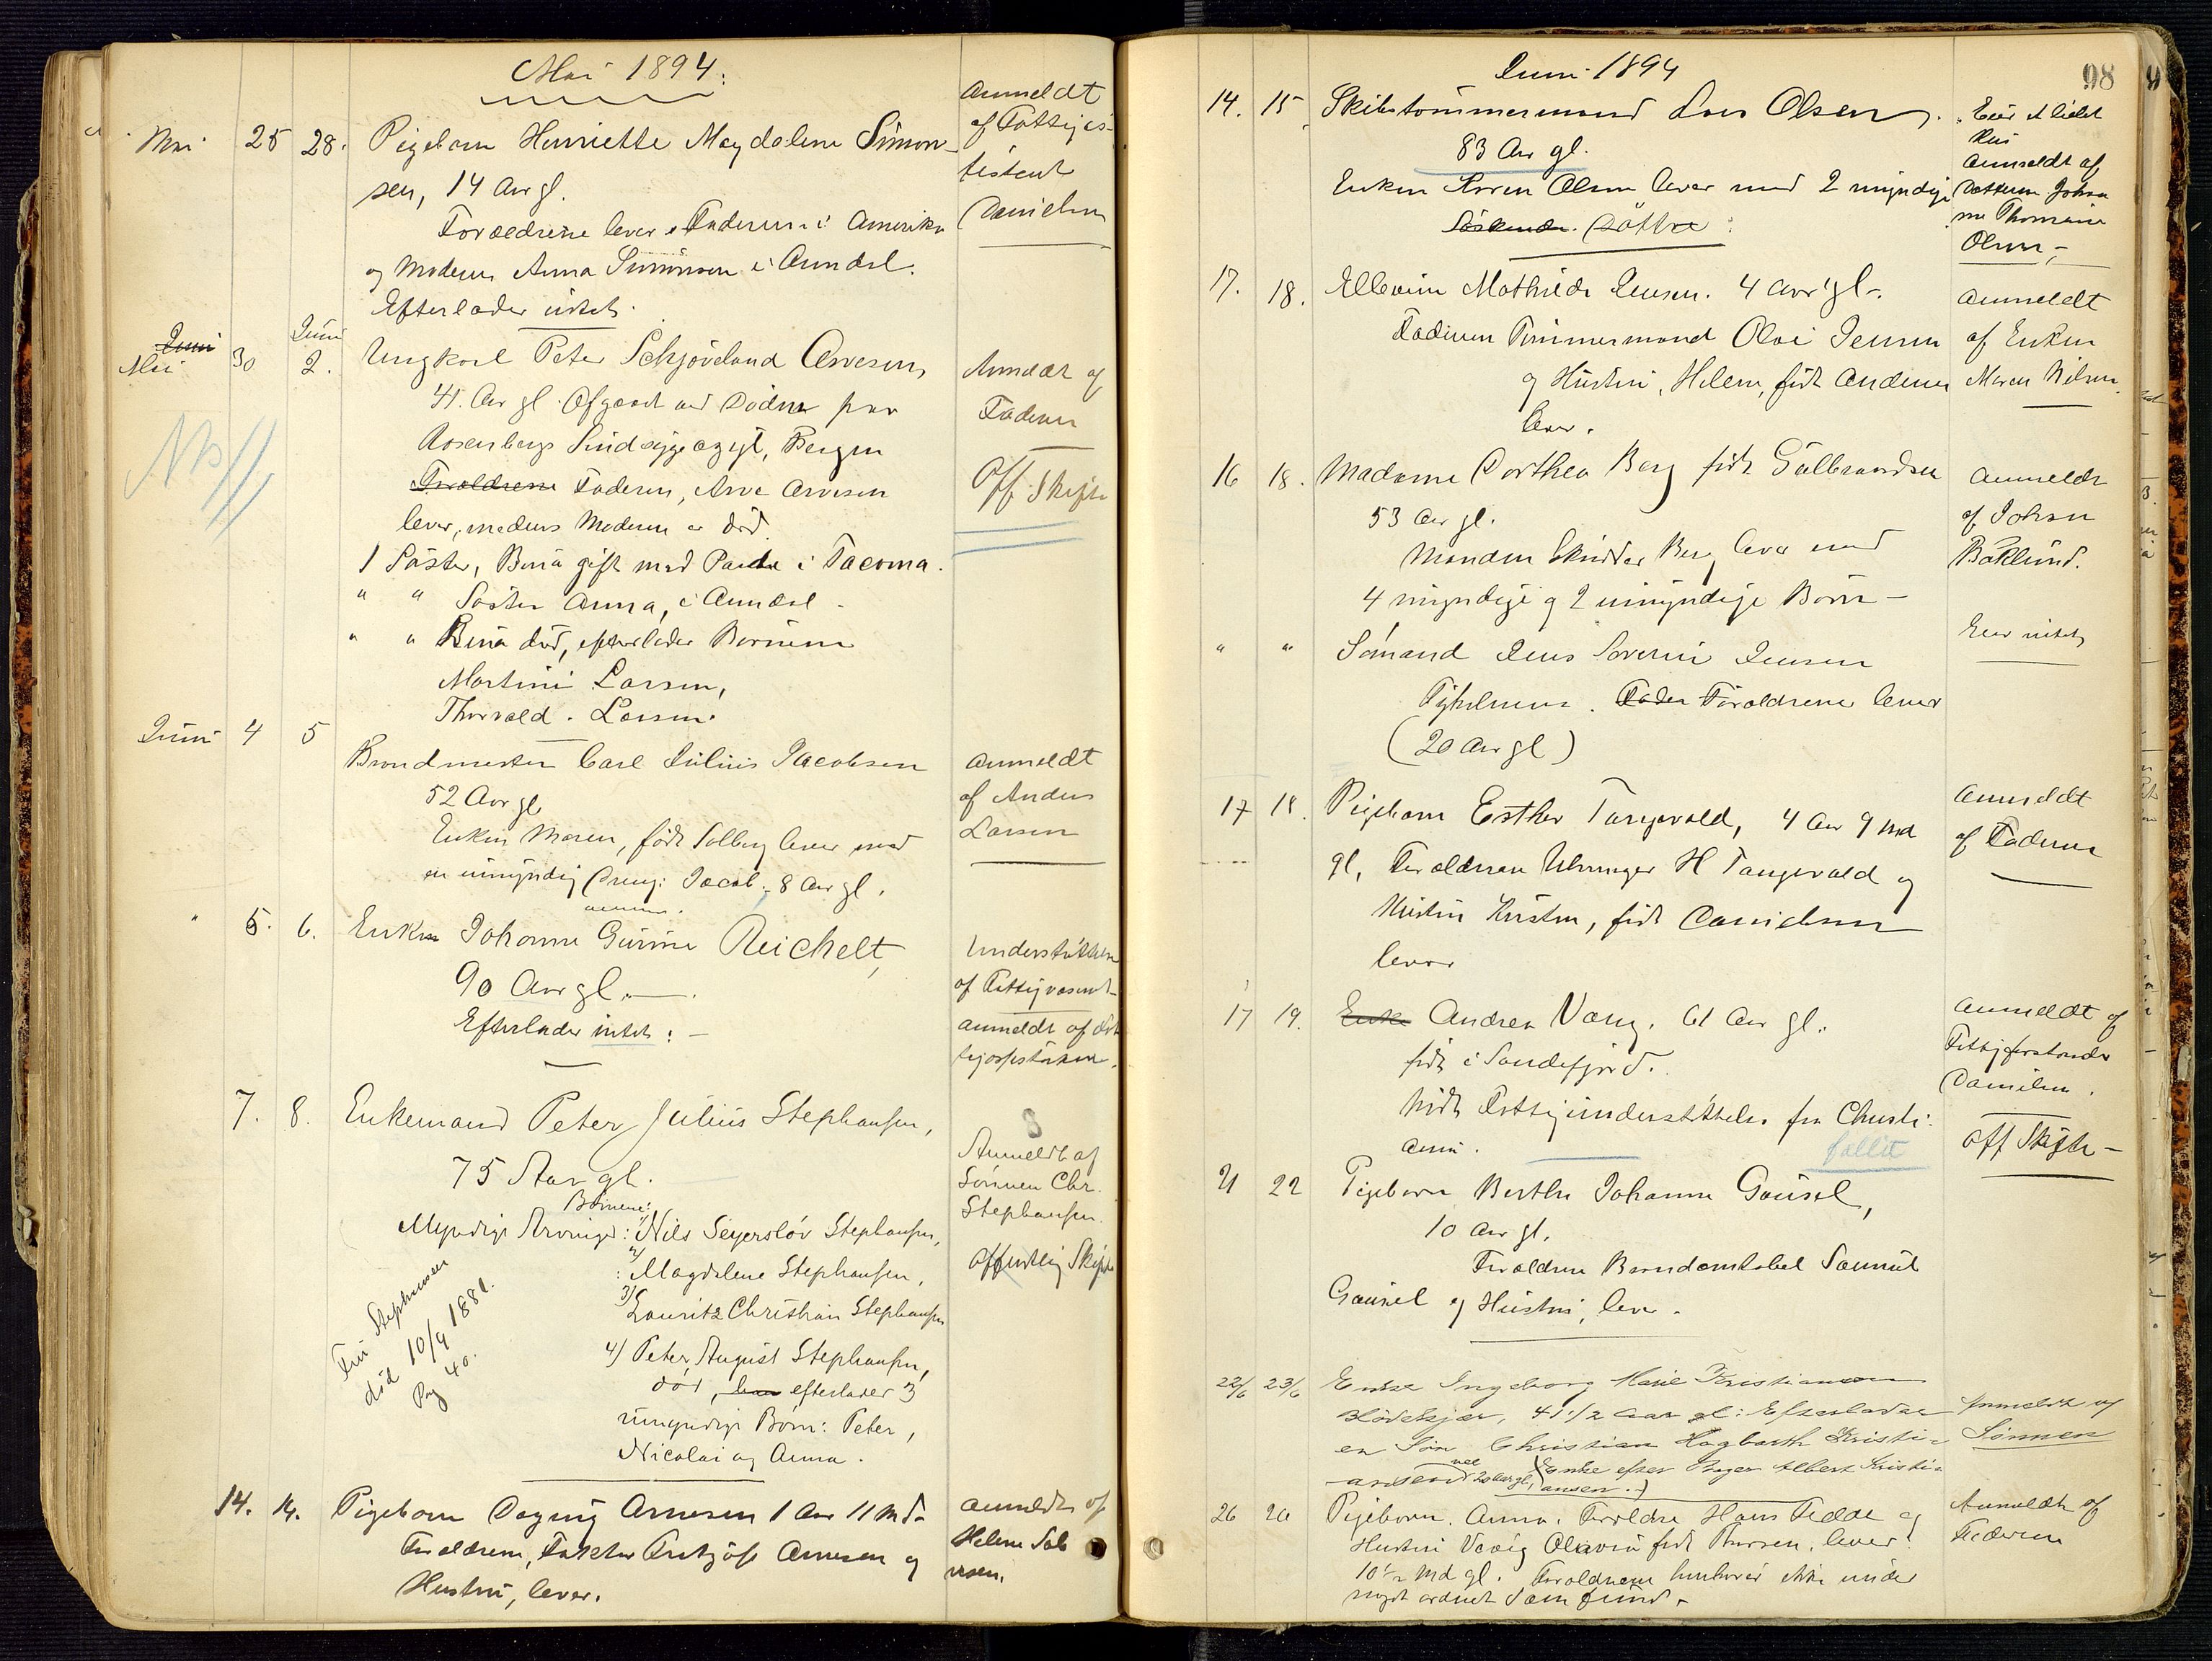 Mai 1894.
Mai 25 28. Pigebarn Henriette Magdalene Simon-
sen, 14 Aar gl.
Forældrene lever, Faderen i Amerika
og Moderen Anna Simonsen i Arendal.
Efterlader intet.
Anmeldt
af Fattigas-
sistent
Danielsen
Juni
Mai 30 Juni 2. Ungkarl Peter Schjøveland Arvesen,
41 Aar gl. Afgaaet ved Døden paa
Rosenbergs Sindsygeasyl, Bergen
Forældrene Faderen, Arve Arvesen
lever, medens Moderen er død.
1 Søster, Bina gift med i Tacoma.
" " Søster Anna, i Arendal.
" " Bina død, efterlader Børnene
Martini Larsen,
Thorvald Larsen.
Anmeldt af
Faderen
Off. Skifte
NB
Juni 4 5 Brandmester Carl Julius Jacobsen
52 Aar gl.
Enken Maren, født Solberg lever med
en umyndig Dreng: Jacob, 8 Aar gl.
Anmeldt
af Anders
Larsen
" 5. 6. Enken Johanne Gurine Reichelt,
90 Aar gl.
Efterlader intet: -
Understøttelse
af Fattigvæsenet
anmeldt af
7. 8. Enkemand Peter Julius Stephansen,
75 Aar gl.
Børnene:
Myndige Arvinger: 1) Nils Sejersløv Stephansen,
2) Magdalene Stephansen,
3) Lauritz Christian Stephansen
4) Peter August Stephansen,
død, han efterlader 3
umyndige Børn: Peter,
Nicolai og Anna.
Fru Stephansen
død 10/9 1881.
Pag 40.
8
Anmeldt af
Sønnen Chr.
Stephansen.
Offentlig Skifte
14. 14. Pigebarn Dagny Arnesen 1 Aar 11 Mdr
Forældrene, Faktor Fritjof Arnesen og
Hustru, lever.
Anmeldt af
Helene Sal
vesen.
Juni 1894
98
14. 15 Skibstømmermand Lars Olsen.
83 Aar gl.
Enken Olsen lever med 2 myndige
Søskende. Døttre:
Eier et lidet
Hus
Anmeldt af
Datteren Johan
ne Thomine
Olsen,-
17. 18. Ellevine Mathilde Jensen. 4 Aar gl.
Faderen Tømmermand Olai Jensen
og Hustru, Helene, født Andersen
lever.
Anmeldt
af Enken
Maren Nilsen.
16 18. Madame Dorthea Berg født Gulbrandsen
53 Aar gl.
Manden Skrædder Berg lever med
4 myndige og 2 umyndige Børn -
Anmeldt
af Johan
Baklund.
" " Sømand Jens Severin Jensen
Tyholmen. Fader Forældrene lever
(20 Aar gl)
Eier intet
17 18. Pigebarn Esther Tangevald, 4 Aar 9 Md
gl, Forældrene Uhrmager H Tangevald og
Hustru Kristine, født Danielsen
lever
Anmeldt
af Faderen
17 19. Enke Andrea Vang. 61 Aar gl.
født i Sandefjord.
Nidt Fattigunderstøttelse fra Christi-
ania.
fallit
Anmeldt af
Fattigforstander
Danielsen.
Off Skifte -
21 22 Pigebarn Berthe Johanne Gausel,
10 Aar gl.
Forældrene Brandkonstabel Samuel
Gausel og Hustru, lever.
22/6 23/6 Enke Ingeborg Marie Kristiansen
Blødekjær, 41 1/2 aar gl: Efterlader
en Søn Christian Hagbarth Kristi-
ansen 20 aar gl, (Enke efter Albert Kristi-
ansen.)
Anmeldt af
Sønnen
26 26 Pigebarn Anna. Forældre Hans Fedde og
Hustru Olavia født lever!
10 1/2 Md gl. Forældrene henhører ikke under
noget ordnet Samfund.
Anmeldt af
Faderen